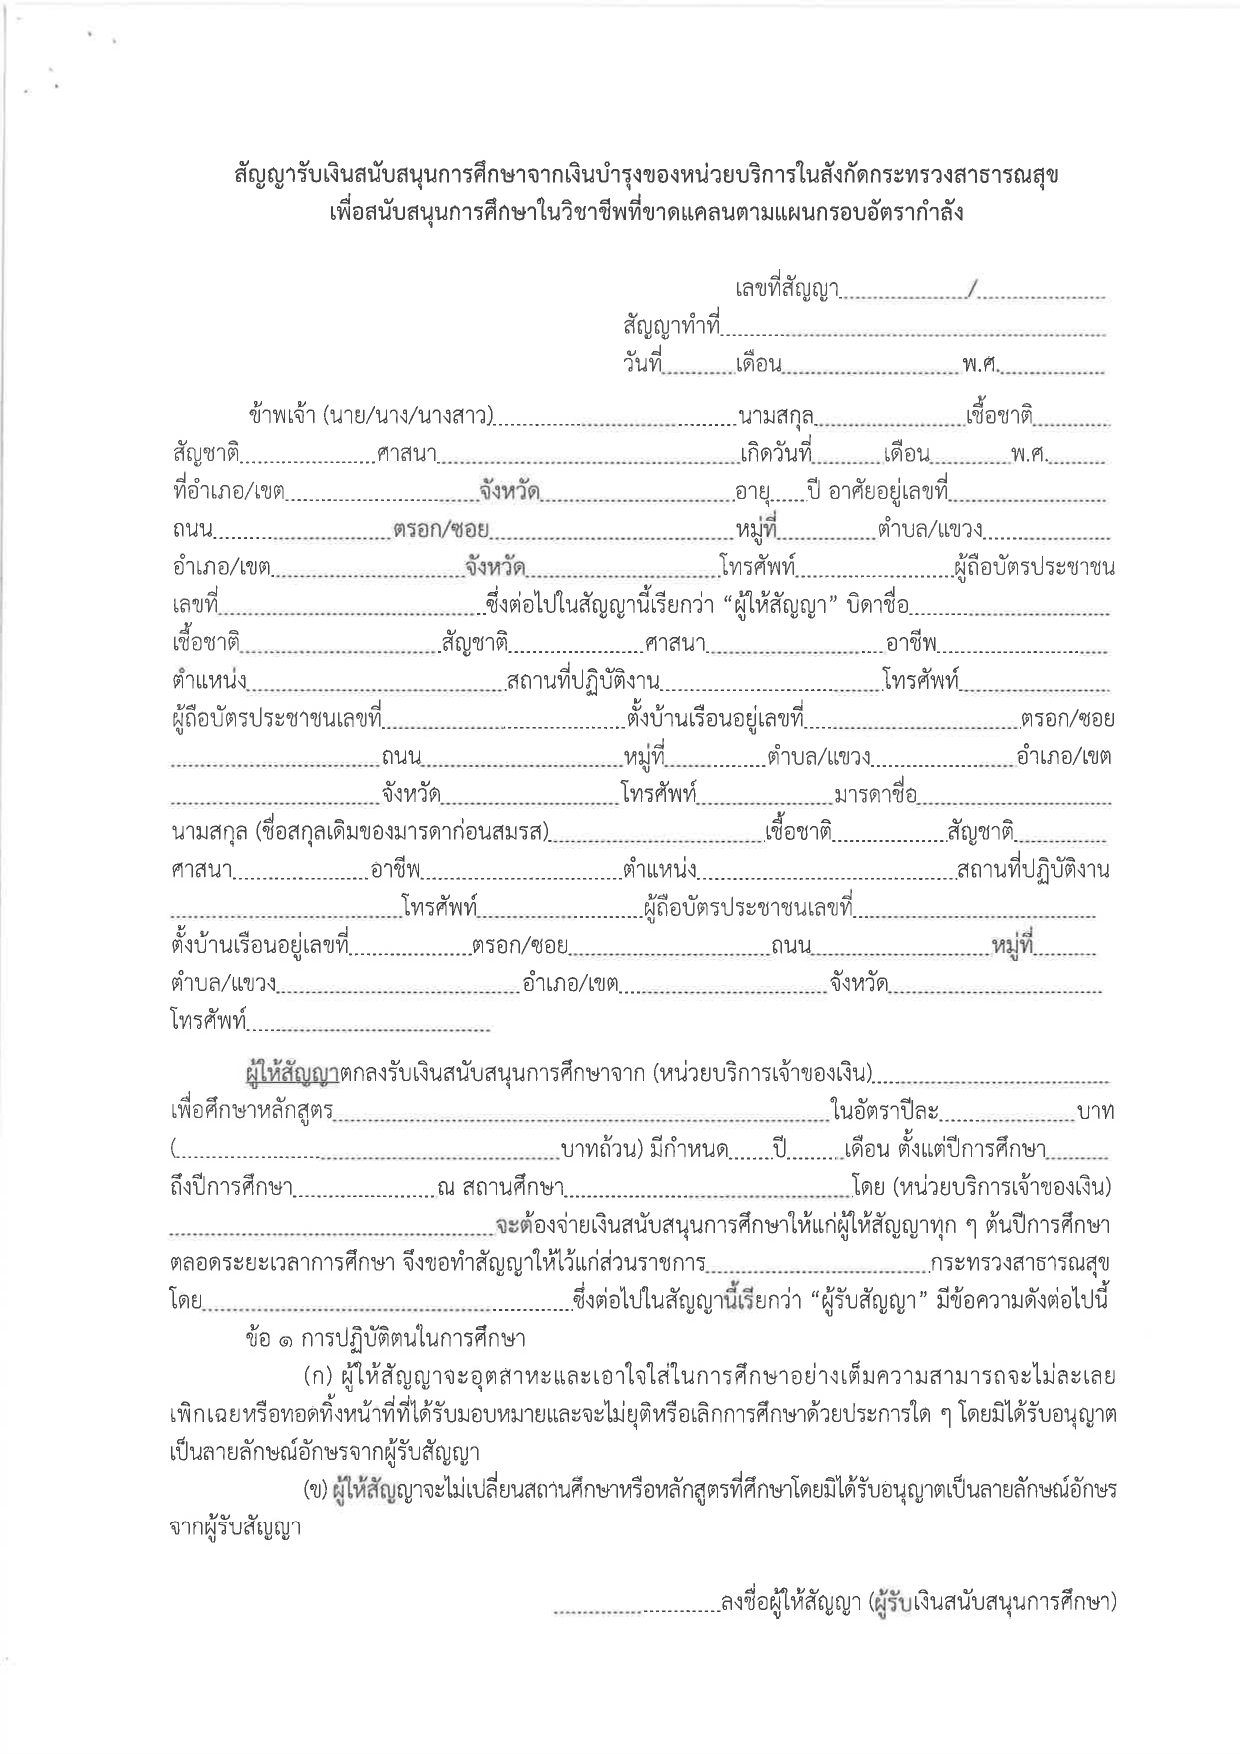 สัญญารับเงินสนับสนุนการศึกษาจากเงินบำรุงของหน่วยบริการในสังกัดกระทรวงสาธารณสุข
เพื่อสนับสนุนการศึกษาในวิชาชีพที่ขาดแคลนตามแผนกรอบอัตรากำลัง
เลขที่สัญญา..................../....................
สัญญาทำที่............................................................
วันที่...........เดือน............................ พ.ศ.................
ข้าพเจ้า (นาย/นาง/นางสาว)......................................นามสกุล........................เชื้อชาติ............
สัญชาติ.....................ศาสนา................................................เกิดวันที่...........เดือน............พ.ศ..........
ที่อำเภอ/เขต..............................จังหวัด...............................อายุ......ปี อาศัยอยู่เลขที่.........................
ถนน............................ตรอก/ซอย.......................................หมู่ที่...............ตำบล/แขวง....................
อำเภอ/เขต...............................จังหวัด...............................โทรศัพท์.........................ผู้ถือบัตรประชาชน
เลขที่..........................................ซึ่งต่อไปในสัญญานี้เรียกว่า “ผู้ให้สัญญา” บิดาชื่อ................................
เชื้อชาติ................................สัญชาติ.....................ศาสนา............................อาชีพ...........................
ตำแหน่ง.........................................สถานที่ปฏิบัติงาน...................................โทรศัพท์........................
ผู้ถือบัตรประชาชนเลขที่......................................ตั้งบ้านเรือนอยู่เลขที่..................................ตรอก/ซอย
.................................ถนน................................หมู่ที่................ตำบล/แขวง.......................อำเภอ/เขต
.................................จังหวัด............................โทรศัพท์.....................มารดาชื่อ...............................
นามสกุล (ชื่อสกุลเดิมของมารดาก่อนสมรส)..................................เชื้อชาติ..................สัญชาติ...............
ศาสนา.....................อาชีพ................................ตำแหน่ง.........................................สถานที่ปฏิบัติงาน
....................................โทรศัพท์..........................ผู้ถือบัตรประชาชนเลขที่......................................
ตั้งบ้านเรือนอยู่เลขที่...................ตรอก/ซอย................................ถนน............................หมู่ที่..........
ตำบล/แขวง.......................................อำเภอ/เขต.................................จังหวัด..................................
โทรศัพท์.......................................
ผู้ให้สัญญาตกลงรับเงินสนับสนุนการศึกษาจาก (หน่วยบริการเจ้าของเงิน)......................................
เพื่อศึกษาหลักสูตร...............................................................................ในอัตราปีละ.....................บาท
(.............................................................บาทถ้วน) มีกำหนด.......ปี.........เดือน ตั้งแต่ปีการศึกษา..........
ถึงปีการศึกษา......................ณ สถานศึกษา..............................................โดย (หน่วยบริการเจ้าของเงิน)
....................................................จะต้องจ่ายเงินสนับสนุนการศึกษาให้แก่ผู้ให้สัญญาทุก ๆ ต้นปีการศึกษา
ตลอดระยะเวลาการศึกษา จึงขอทำสัญญาให้ไว้แก่ส่วนราชการ....................................กระทรวงสาธารณสุข
โดย...........................................................ซึ่งต่อไปในสัญญานี้เรียกว่า “ผู้รับสัญญา” มีข้อความดังต่อไปนี้
ข้อ ๑ การปฏิบัติตนในการศึกษา
(ก) ผู้ให้สัญญาจะอุตสาหะและเอาใจใส่ในการศึกษาอย่างเต็มความสามารถจะไม่ละเลย
เพิกเฉยหรือทอดทิ้งหน้าที่ที่ได้รับมอบหมายและจะไม่ยุติหรือเลิกการศึกษาด้วยประการใด ๆ โดยมิได้รับอนุญาต
เป็นลายลักษณ์อักษรจากผู้รับสัญญา
(ข) ผู้ให้สัญญาจะไม่เปลี่ยนสถานศึกษาหรือหลักสูตรที่ศึกษาโดยมิได้รับอนุญาตเป็นลายลักษณ์อักษร
จากผู้รับสัญญา
...........................ลงชื่อผู้ให้สัญญา (ผู้รับเงินสนับสนุนการศึกษา)